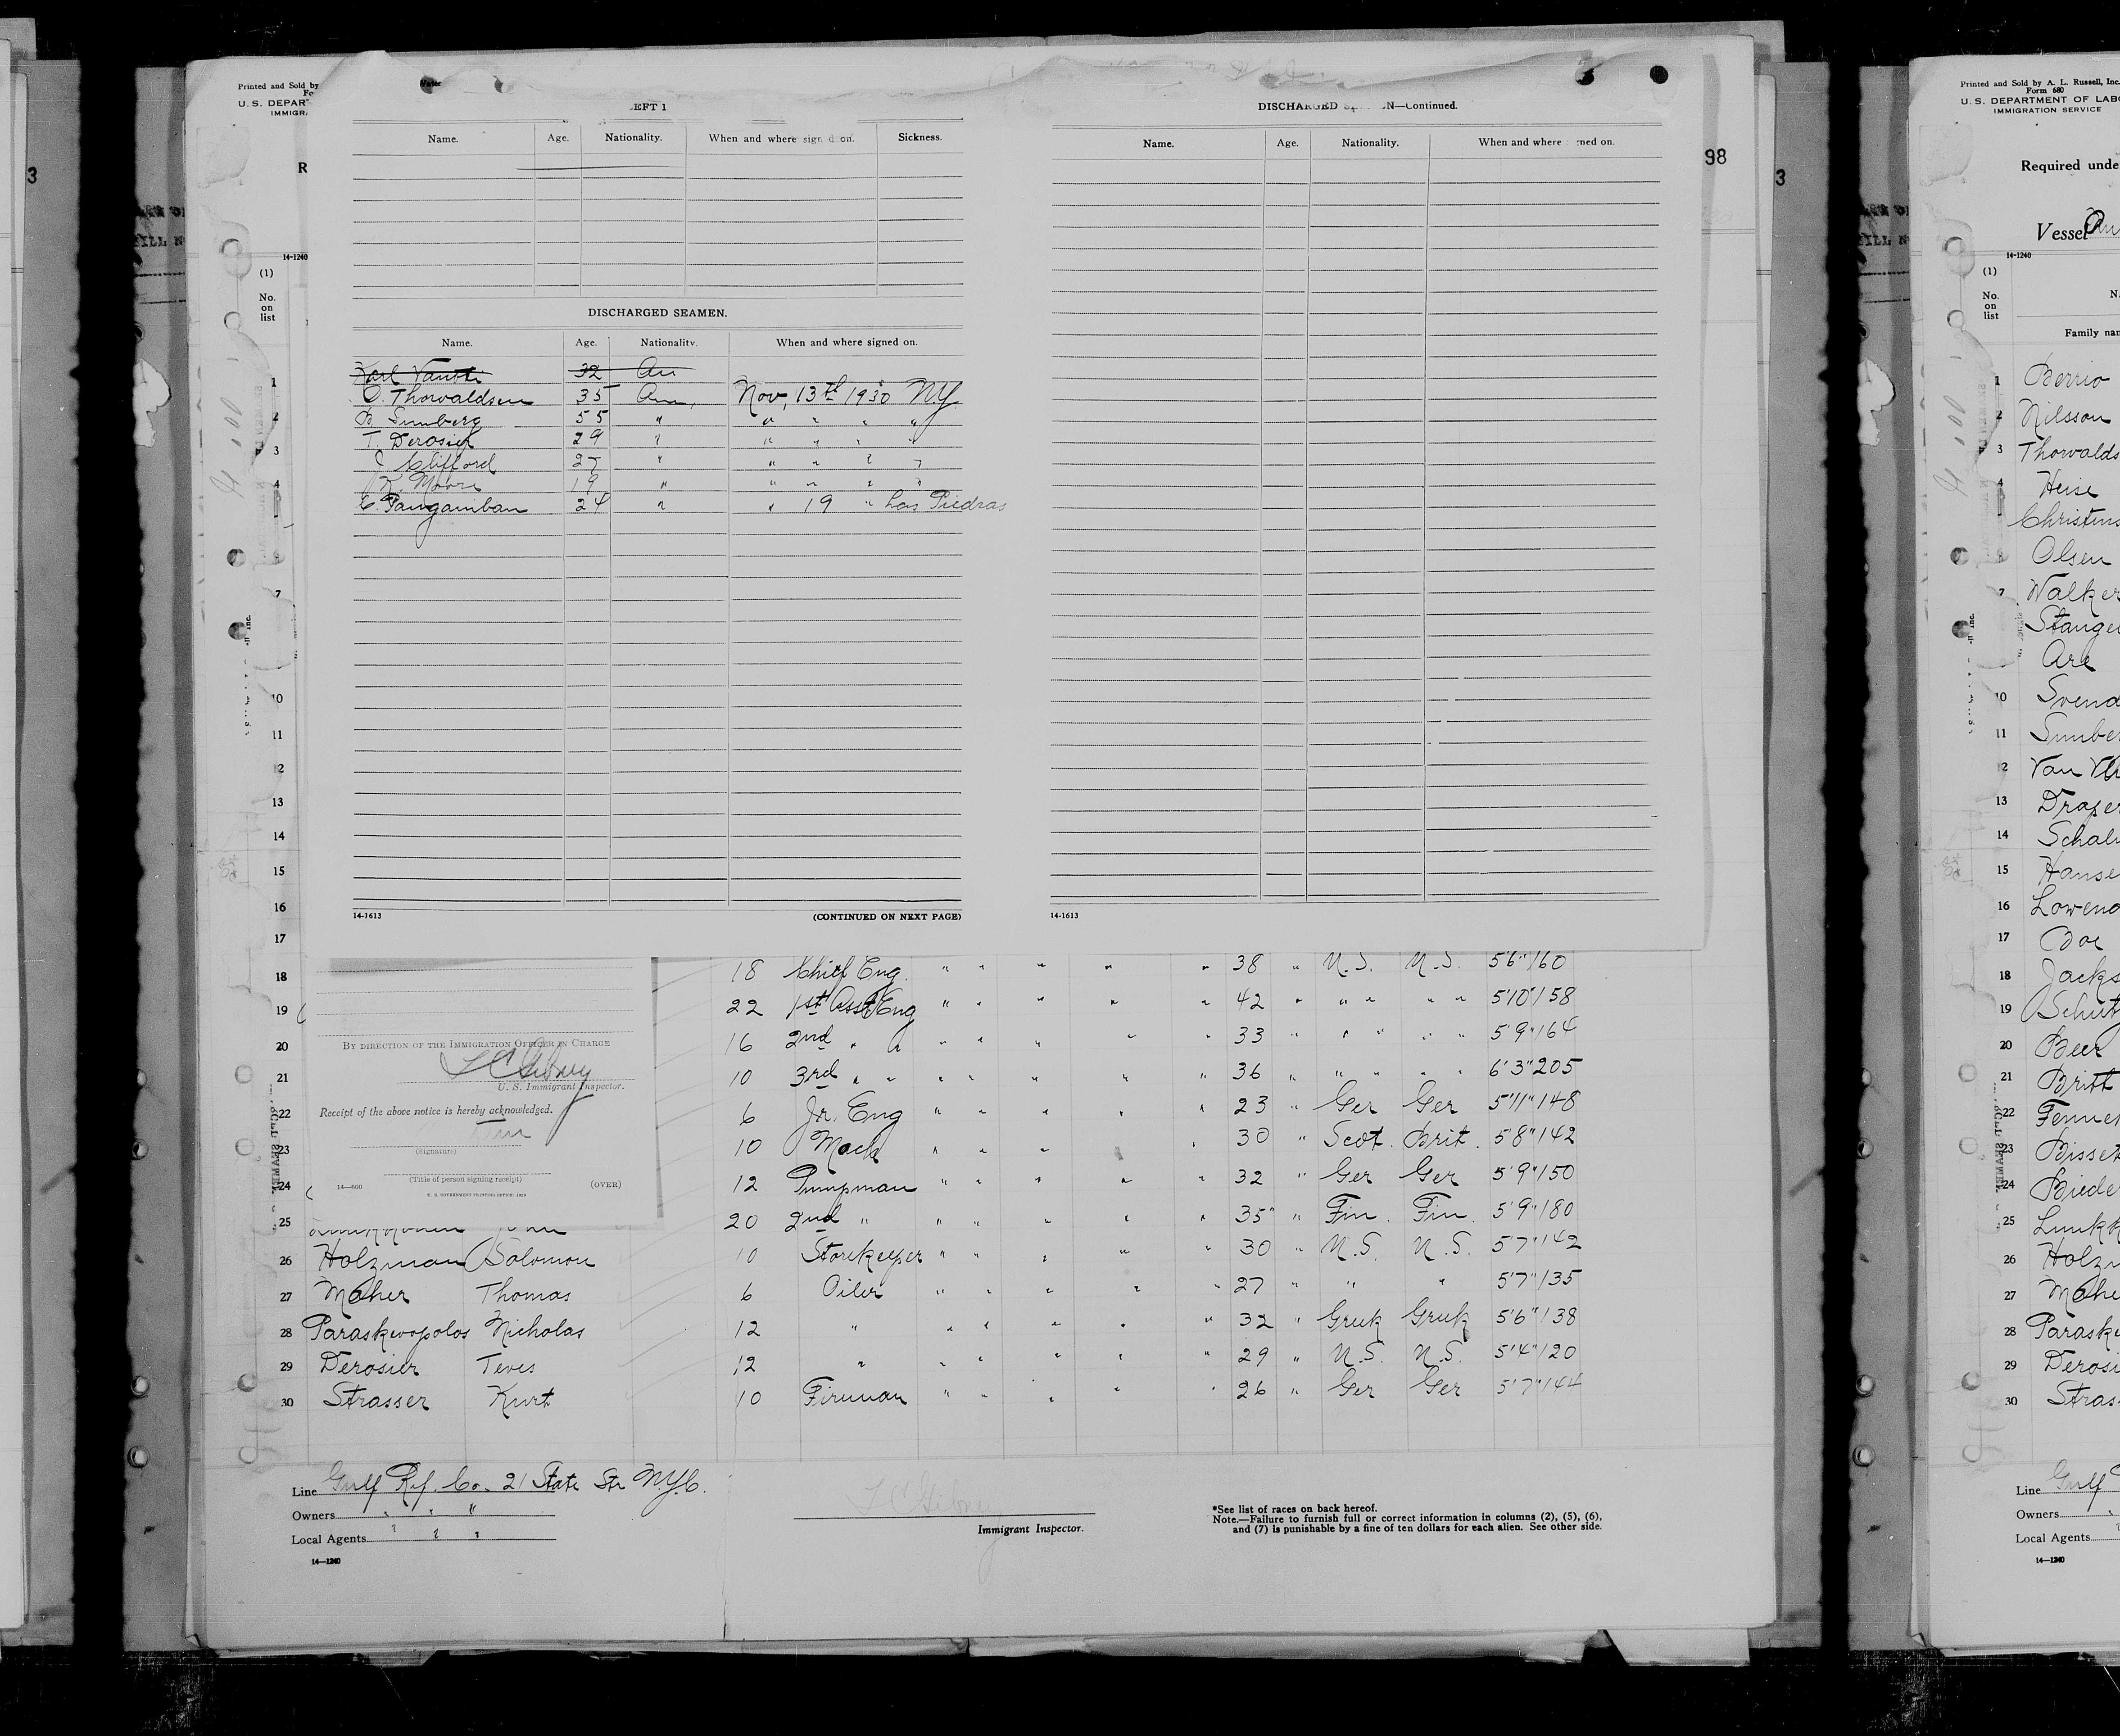 Printed and Sold by
U. S. DEPAR
IMMIGR
R
14-1240
(1)
No.
on
list
EFT 1
Name. Age. Nationality. When and where signed on. Sickness.
DISCHARGED SEAMEN.
Name. Age. Nationality. When and where signed on.
32 Am
O. Thorvaldsen 35 Am, Nov, 13th 1930 N.Y.
B Sunberg 55 " " " " "
T. Derosier 29 " " " " "
J Clifford 27 " " " "
K. Moore 19 " " " " "
C. Pangamban 24 " " 19 " Las Piedras
14-1613 (CONTINUED ON NEXT PAGE)
DISCHARGED S N—Continued.
Name. Age. Nationality. When and where ned on.
14-1613
98
3
3
1
2
3
4
7
10
11
12
13
14
15
16
17
18 18 Chief Eng. " " " " " 38 " U.S. U.S. 5'6" 160
19 22 1st Asst Eng " " " " " 42 " " " " " 5'10" 158
20 16 2nd " " " " " " " 33 " " " " " 5'9" 164
21 10 3rd " " " " " " " 36 " " " " " 6'3" 205
22 6 Jr. Eng " " " " " 23 " Ger Ger 5'11" 148
23 10 Mach " " " " 30 " Scot. Brit. 5'8" 142
24 12 Pumpman " " " " " 32 " Ger Ger 5'9" 150
25 20 2nd " " " " " " 35 " Fin. Fin. 5'9" 180
26 Holzman Solomon 10 Storekeeper " " " " " 30 " U.S. U.S. 5'7" 142
27 Maher Thomas 6 Oiler " " " " " 27 " " " 5'7" 135
28 Paraskevopolos Nicholas 12 " " " " " " 32 " Greek Greek 5'6" 138
29 Derosier Teves 12 " " " " " " 29 " U.S. U.S. 5'4" 120
30 Strasser Kurt 10 Fireman " " " " " 26 " Ger Ger 5'7" 144
BY DIRECTION OF THE IMMIGRATION OFFICER IN CHARGE
U. S. Immigrant Inspector.
Receipt of the above notice is hereby acknowledged.
(Signature)
(Title of person signing receipt)
14—660 (OVER)
U. S. GOVERNMENT PRINTING OFFICE: 1929
Line Gulf Ref. Co. 21 State Str N.Y.C.
Owners " " "
Local Agents " " "
14—1240
Immigrant Inspector.
*See list of races on back hereof.
Note.—Failure to furnish full or correct information in columns (2), (5), (6),
and (7) is punishable by a fine of ten dollars for each alien. See other side.
Printed and Sold by A. L. Russell, Inc.
Form 680
U. S. DEPARTMENT OF LABO
IMMIGRATION SERVICE
Required unde
Vessel
14-1240
(1)
No.
on
list
Family nam
1 Berrio
2 Nilsson
3 Thorvalds
4 Heise
Christens
Olsen
7 Walker
Stange
Are
10 Svend
11 Sunber
12 Van
13 Draper
14 Schal
15 Hanse
16 Lowend
17 Boe
18 Jacks
19 Schut
20 Beer
21 Britt
22 Fenne
23 Bisset
24 Bieder
25 Lunkk
26 Holzm
27 Mahe
28 Paraske
29 Derosi
30 Stras
Line Gulf
Owners
Local Agents
14—1240